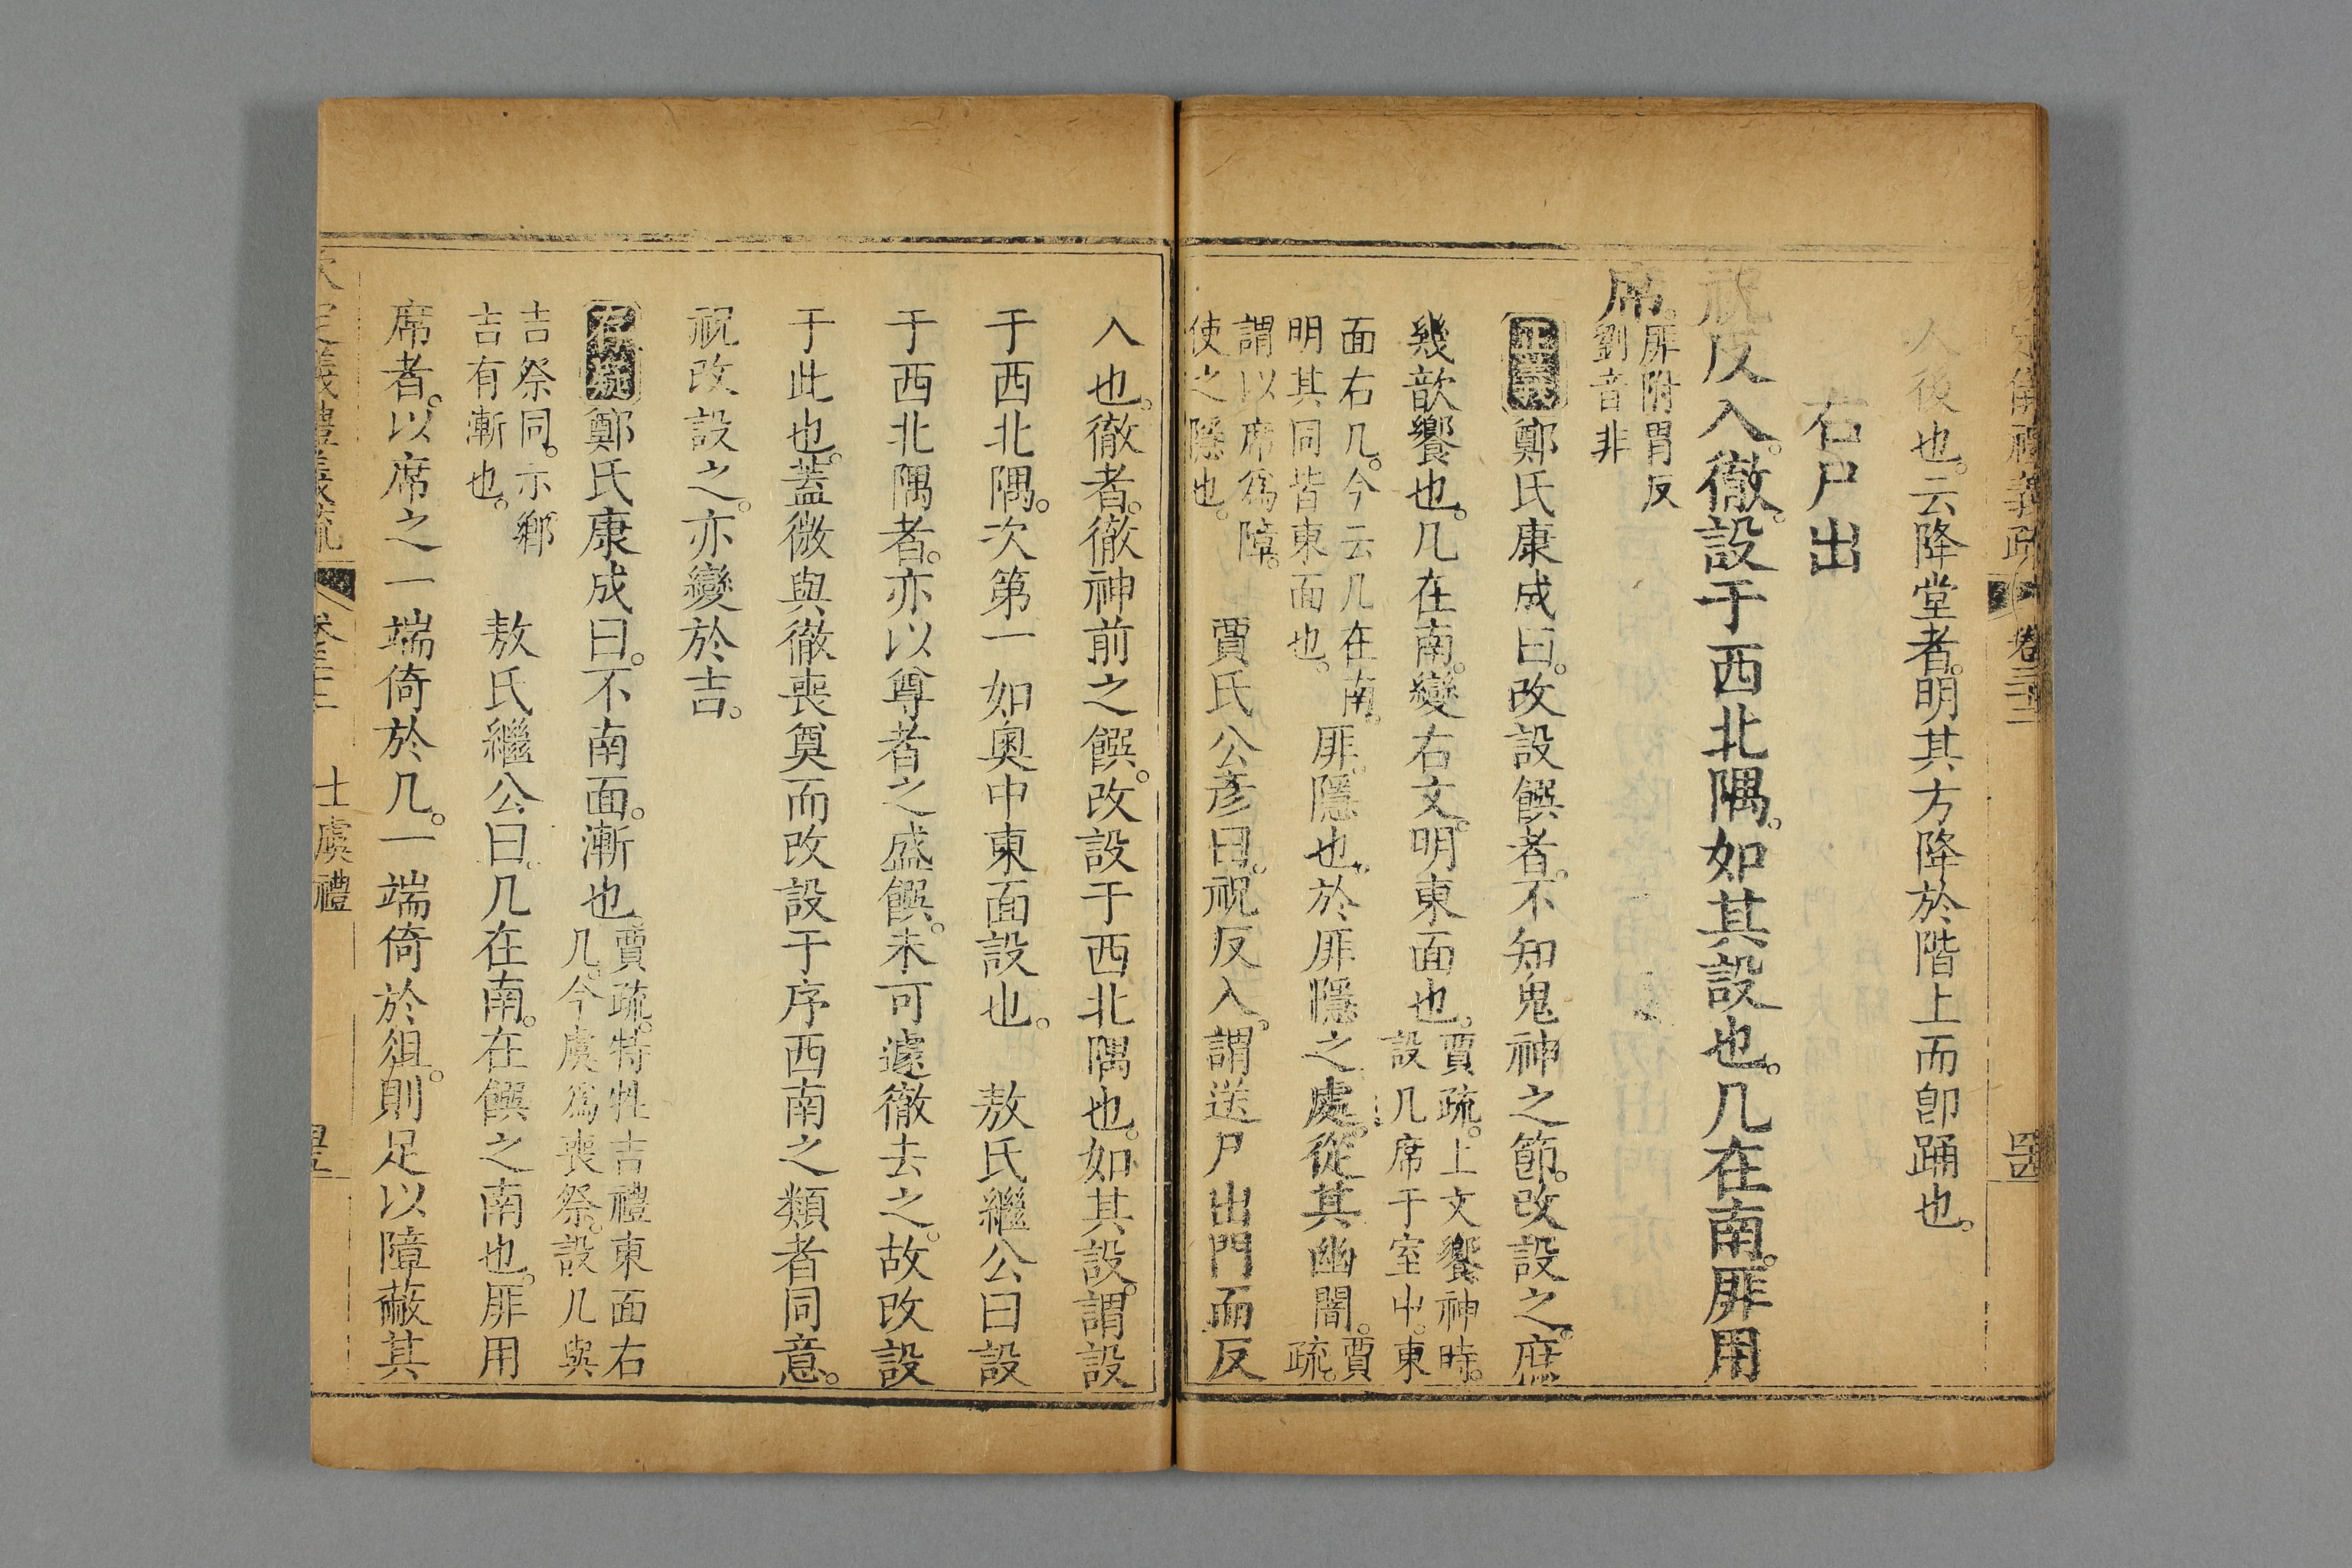 欽定儀禮義疏 卷三十三 四十四
人後也。云降堂者。明其方降於階上而卽踊也。
右尸出
祝反入。徹。設于西北隅。如其設也。几在南。厞用
席。厞附胃反劉音非
正義鄭氏康成曰。改設饌者。不知鬼神之節。改設之。庶
幾歆饗也。几在南。變右文。明東面也。賈疏。上文饗神時。設几席于室中。東
面右几。今云几在南。明其同皆東面也。厞。隱也。於厞隱之處。從其幽闇。賈疏。
謂以席爲障。使之隱也。賈氏公彥曰。祝反入。謂送尸出門而反
入也。徹者。徹神前之饌。改設于西北隅也。如其設。謂設
于西北隅。次第一如奧中東面設也。 敖氏繼公曰設
于西北隅者。亦以尊者之盛饌。未可遽徹去之。故改設
于此也。蓋微與徹喪奠而改設于序西南之類者同意。
祝改設之。亦變於吉。
存疑鄭氏康成曰。不南面。漸也賈疏。特牲吉禮東面右几。今虞爲喪祭。設几與
吉祭同。亦鄉吉有漸也。 敖氏繼公曰。几在南。在饌之南也。厞用
席者。以席之一端倚於几。一端倚於俎。則足以障蔽其
欽定儀禮義疏 卷三十三 士虞禮 四十五